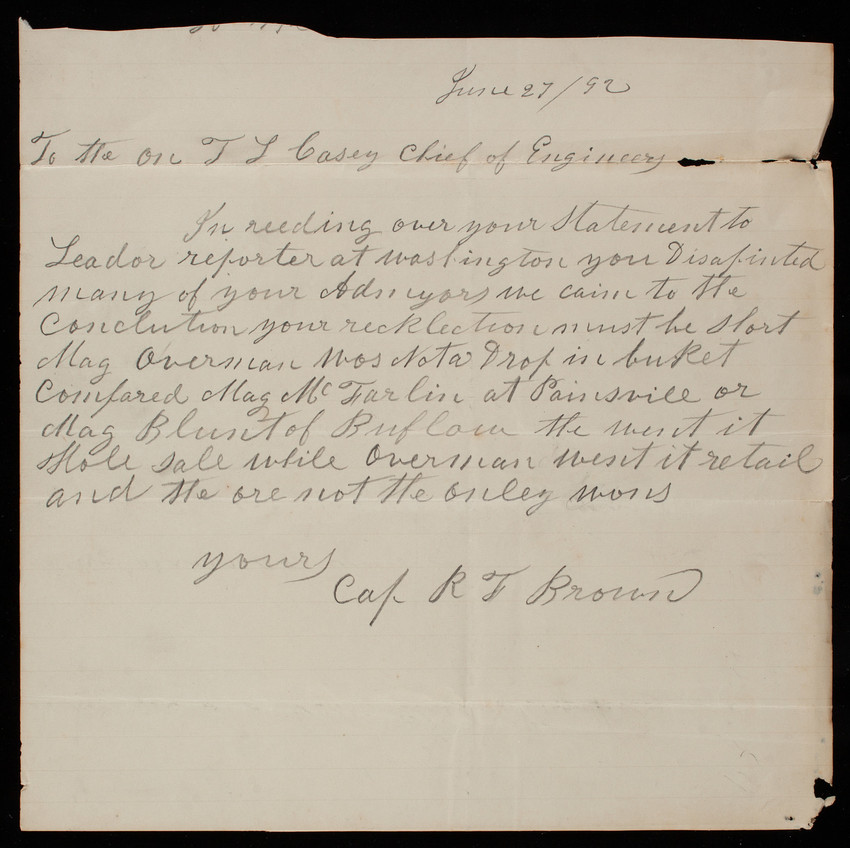 June 27/92
To the on T L Casey Chief of Engineers
In reeding over your Statement to
Leador reporter at washington you Disapinted
many of your Admeyors we caim to the
Conclution your recklection must be short
Mag Overman Wos Not a Drop in buket
Compared Mag Mc Farlin at Painsville or
Mag Blunt of Buflow the went it
Hole sale while Overman went it retail
and the ore not the onley wons
yours
Cap R F Brown